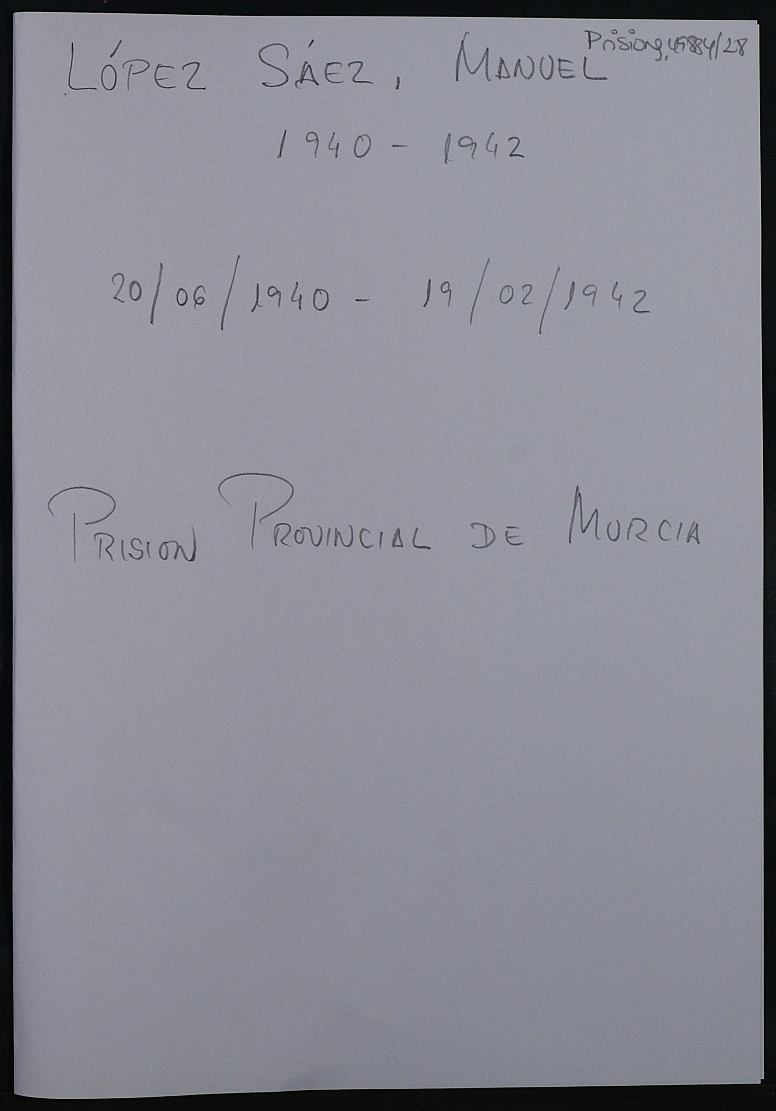 LÓPEZ SÁEZ, MANUEL
1940 - 1942
20/06/1940 - 19/02/1942
PRISION PROVINCIAL DE MURCIA